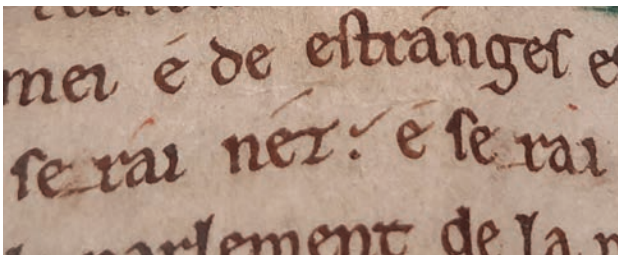 mei é de eſtrángeſ e
ſe rái nét : é ſe rai
parlement de la